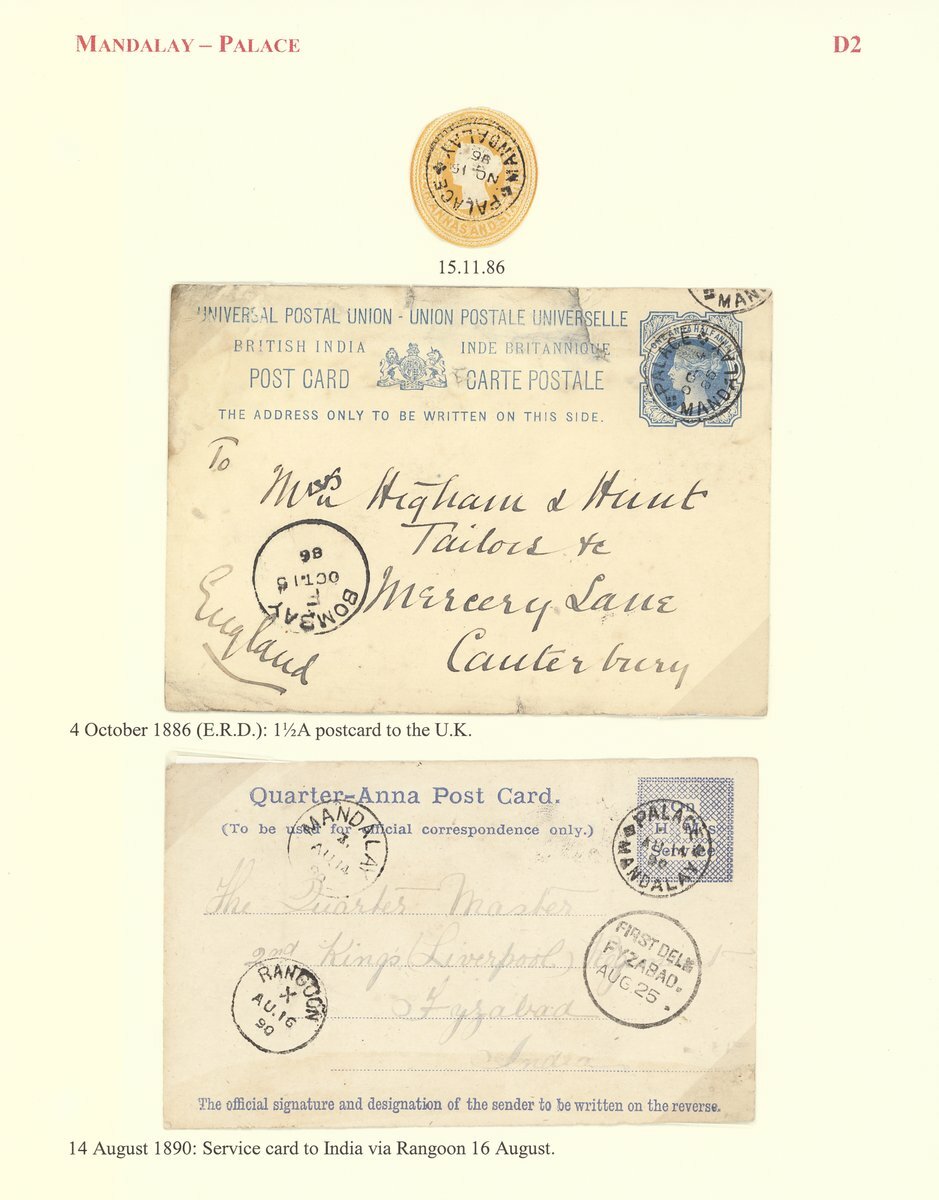 MANDALAY – PALACE D2
PALACE MANDALAY
NO 15
86
15.11.86
UNIVERSAL POSTAL UNION - UNION POSTALE UNIVERSELLE
BRITISH INDIA INDE BRITANNIQUE
POST CARD CARTE POSTALE
THE ADDRESS ONLY TO BE WRITTEN ON THIS SIDE.
MAND
PALACE MANDALA
To
Higham & Hunt
Tailors &c
Mercery Lane
Canterbury
England
BOMBAY
OCT.15
86
4 October 1886 (E.R.D.): 1½A postcard to the U.K.
Quarter-Anna Post Card.
(To be used for official correspondence only.)
On
H M's
Service
PALACE
AU 14
90
MANDALAY
MANDALAY
AU 14
90
The Quarter Master
2nd Kings (Liverpool) Regiment
Fyzabad
India
FIRST DELY
FYZABAD.
AUG.25
RANGOON
AU.16
90
The official signature and designation of the sender to be written on the reverse.
14 August 1890: Service card to India via Rangoon 16 August.